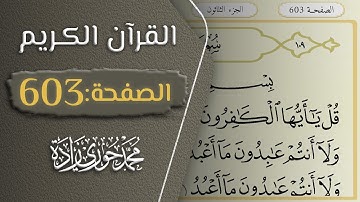 القرآن الكريم
الصفحة:603
محمد حوري زادة
الصفحة 603
الجزء الثلاثون
١٠٩
بِسْمِ
قُلْ يَٰٓأَيُّهَا ٱلْكَٰفِرُونَ
وَلَآ أَنتُمْ عَٰبِدُونَ مَآ أَعْبُدُ
وَلَآ أَنتُمْ عَٰبِدُونَ مَآ أَعْبُدُ